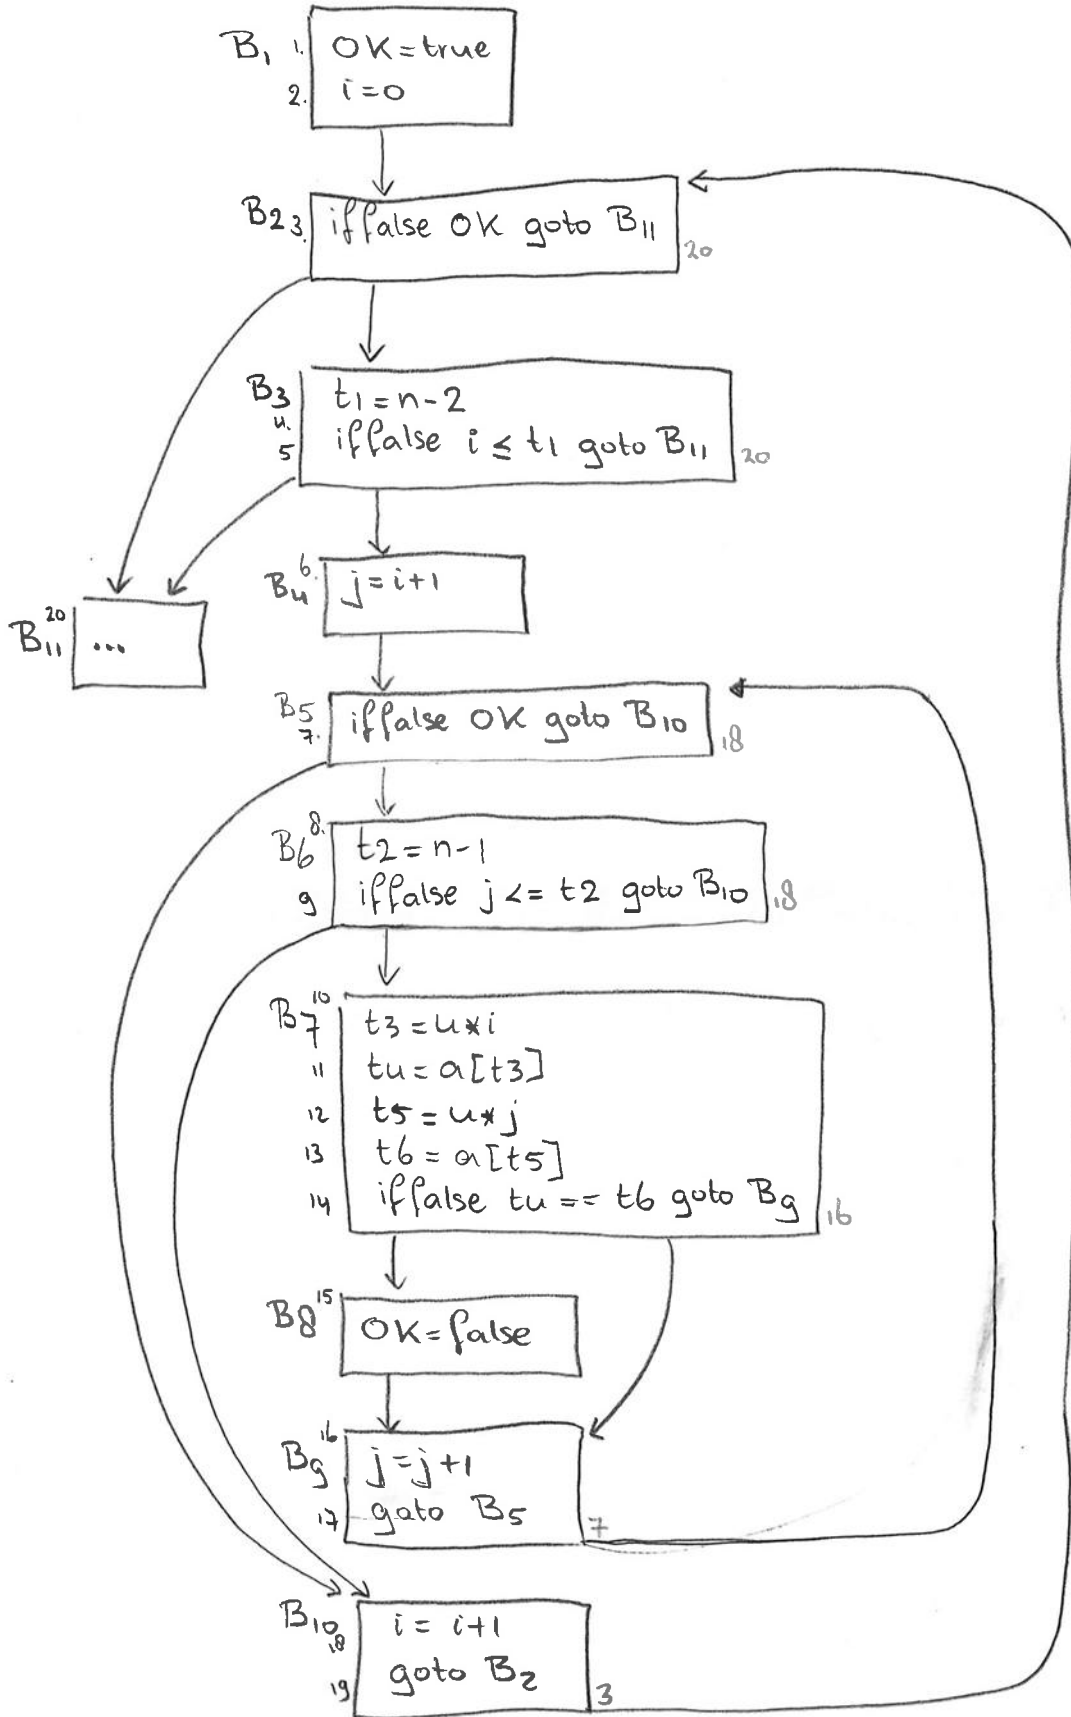 B1 1. OK=true
2. i=0
B2 3. iffalse OK goto B11 20
B3 t1=n-2
4.
5 iffalse i ≤ t1 goto B11 20
B4 6. j=i+1
B11 20 ...
B5 iffalse OK goto B10 18
7.
B6 8. t2=n-1
9 iffalse j <= t2 goto B10 18
B7 10 t3=4*i
11 t4=a[t3]
12 t5=4*j
13 t6=a[t5]
14 iffalse t4 == t6 goto B9 16
B8 15 OK=false
B9 16 j=j+1
17 goto B5 7
B10 18 i=i+1
19 goto B2 3